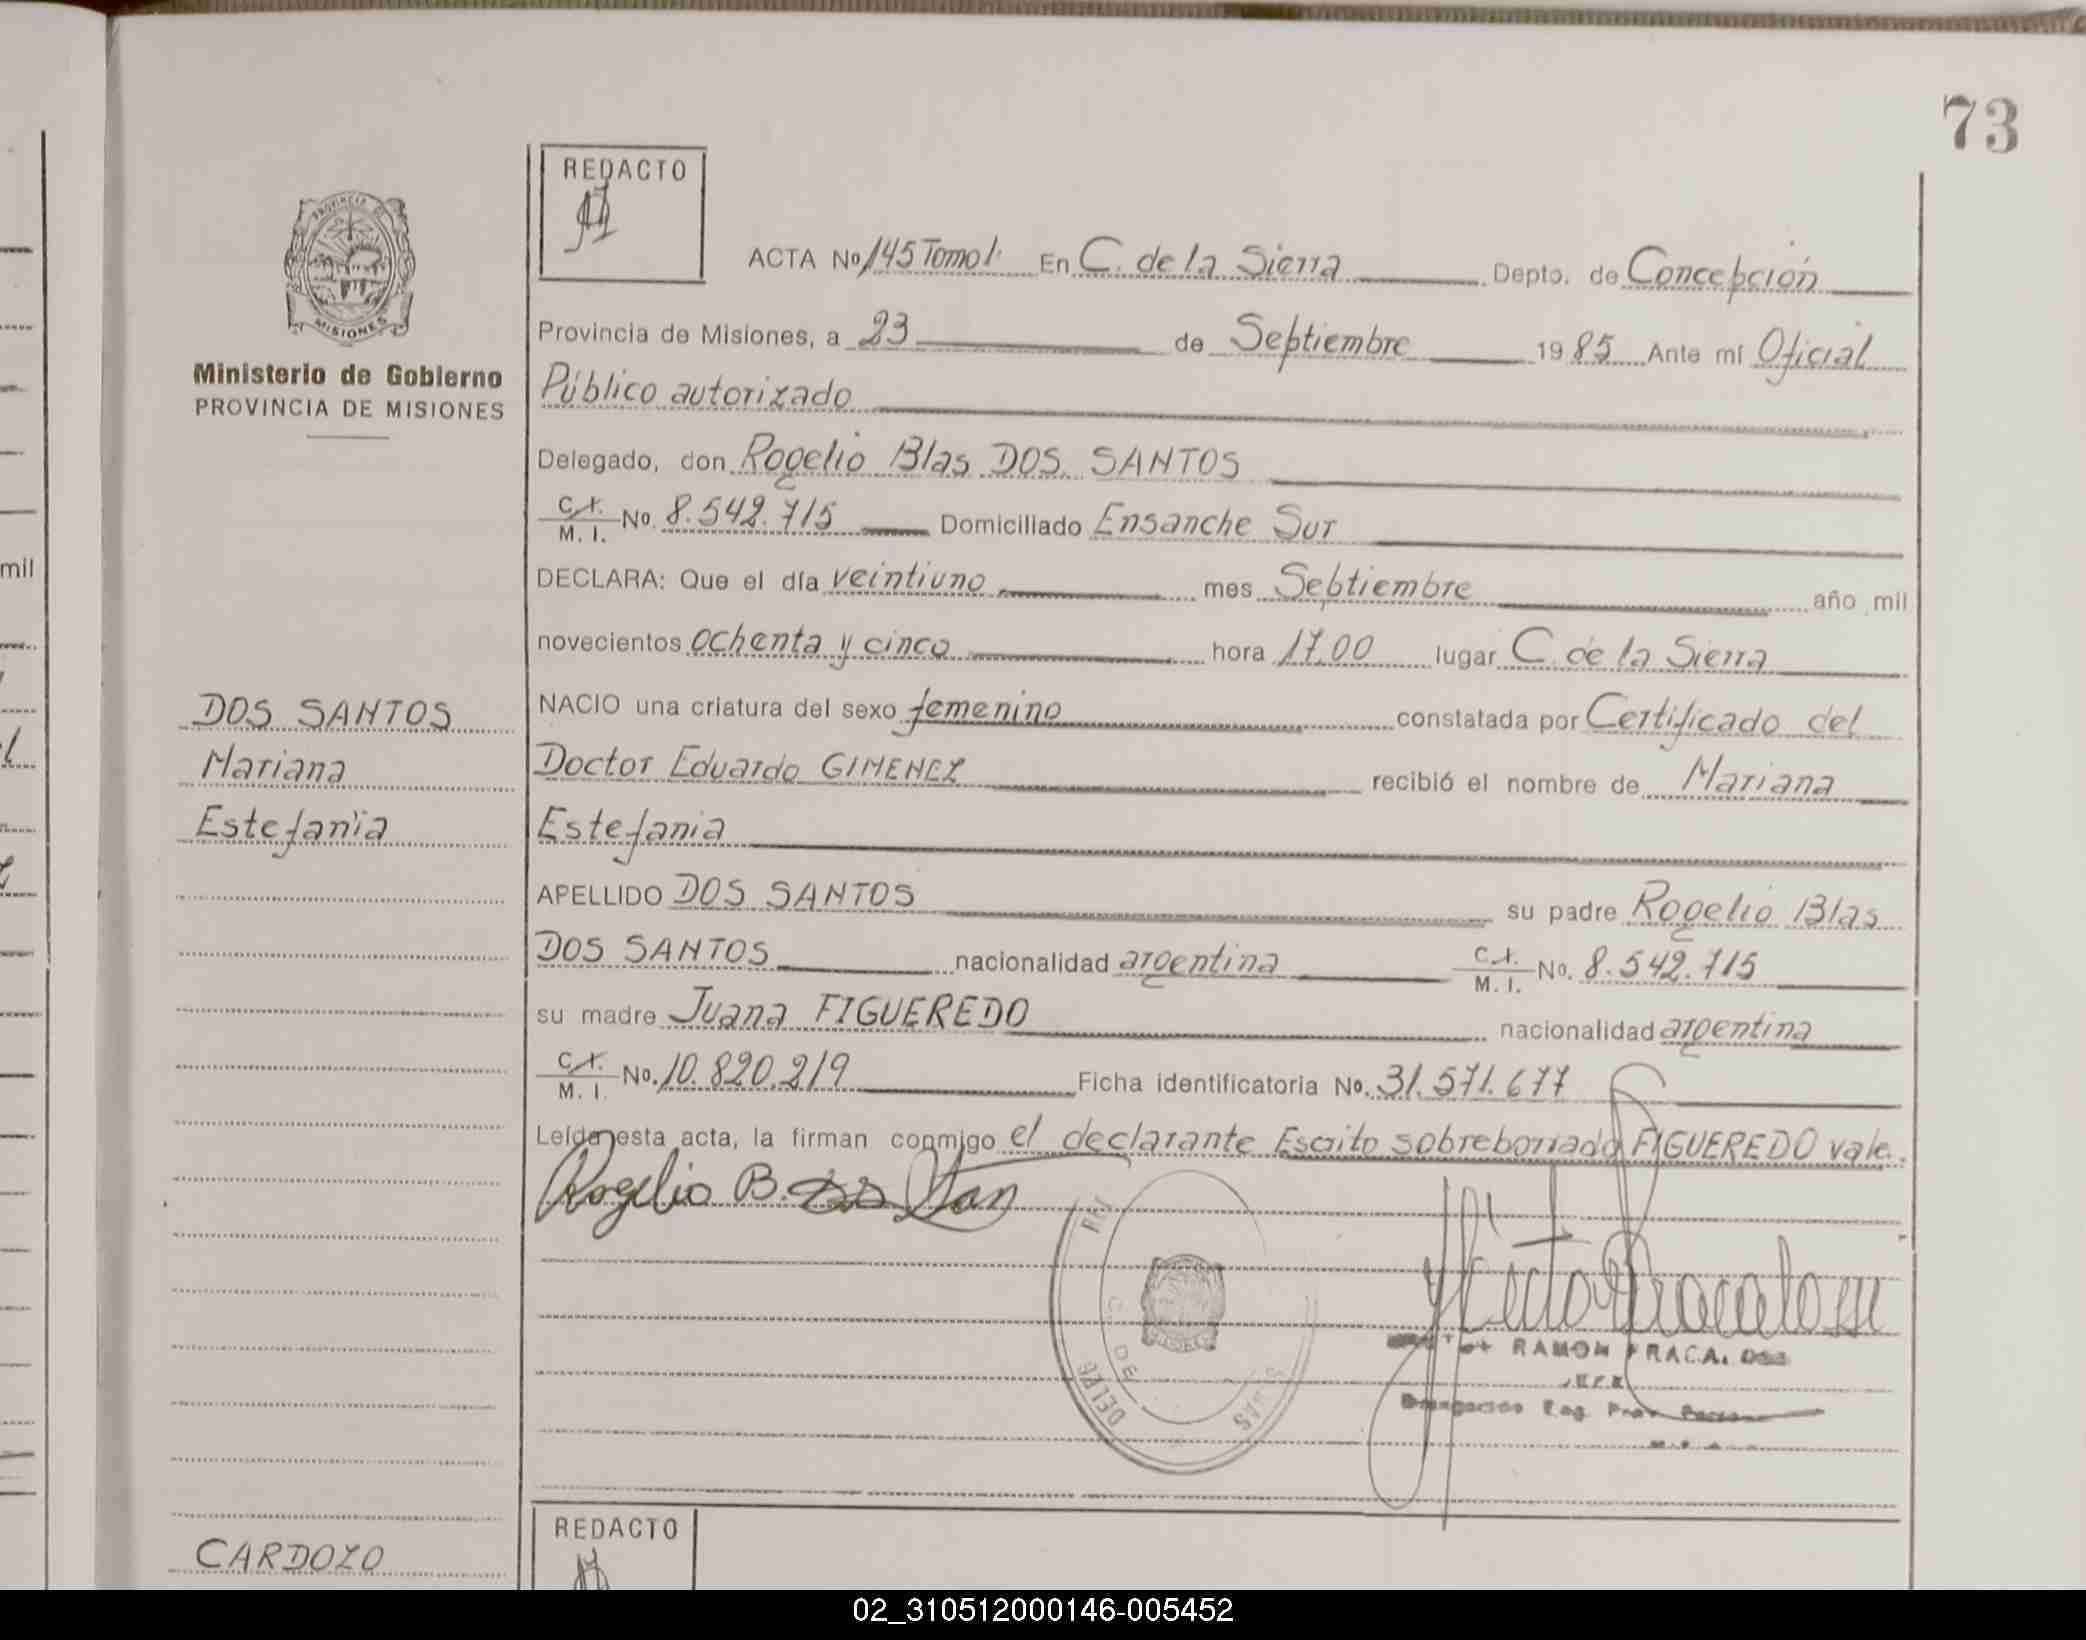 73
REDACTO
ACTA No 145 Tomo I. En C. de la Sierra Depto. de Concepción
Provincia de Misiones, a 23 de Septiembre 1985 Ante mí Oficial
Público autorizado
Delegado, don Rogelio Blas DOS SANTOS
C.I. M. I. No. 8.542.715 Domiciliado Ensanche Sur
DECLARA: Que el día veintiuno mes Septiembre año mil
novecientos ochenta y cinco hora 17.00 lugar C. de la Sierra
NACIO una criatura del sexo femenino constatada por Certificado del
Doctor Eduardo GIMENEZ recibió el nombre de Mariana
Estefania
APELLIDO DOS SANTOS su padre Rogelio Blas
DOS SANTOS nacionalidad argentina C.I. M. I. No. 8.542.715
su madre Juana FIGUEREDO nacionalidad argentina
C.I. M. I. No. 10.820.219 Ficha identificatoria No. 31.571.677
Leída esta acta, la firman conmigo el declarante Escrito sobreborrado FIGUEREDO vale.
Rogelio B. Dos San
RAMON
JEFE
PROVINCIA DE
MISIONES
Ministerio de Gobierno
PROVINCIA DE MISIONES
DOS SANTOS
Mariana
Estefanía
CARDOZO
REDACTO
mil
02_310512000146-005452